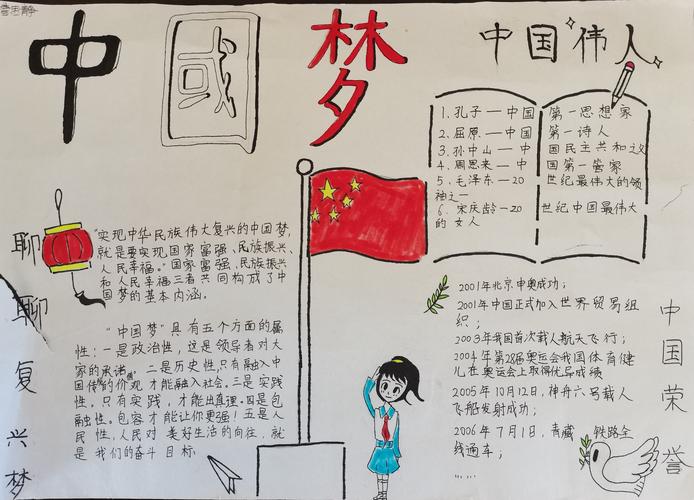 中國梦
中国伟人
1.孔子——中国第一思想家
2.屈原——中国第一诗人
3.孙中山——中国民主共和之父
4.周恩来——中国第一管家
5.毛泽东——20世纪最伟大的领
袖之一
6.宋庆龄——20世纪中国最伟大
的女人
聊聊复兴梦
“实现中华民族伟大复兴的中国梦,
就是要实现国家富强、民族振兴、
人民幸福。”国家富强、民族振兴
和人民幸福三者共同构成了中
国梦的基本内涵。
“中国梦”具有五个方面的属
性:一是政治性,这是领导者对大
家的承诺。二是历史性,只有融入中
国传的价观,才能融入社会。三是实践
性。只有实践,才能出真理。四是包
融性。包容才能让你更强!五是人
民性,人民对美好生活的向往,就
是我们的奋斗目标。
2001年北京申奥成功;
2001年中国正式加入世界贸易组
织;
2003年我国首次载人航天飞行;
2004年第28届奥运会我国体育健
儿在奥运会上取得优异成绩
2005年10月12日,神舟六号载人
飞船发射成功;
2006年7月1日,青藏铁路全
线通车;
……
中国荣誉